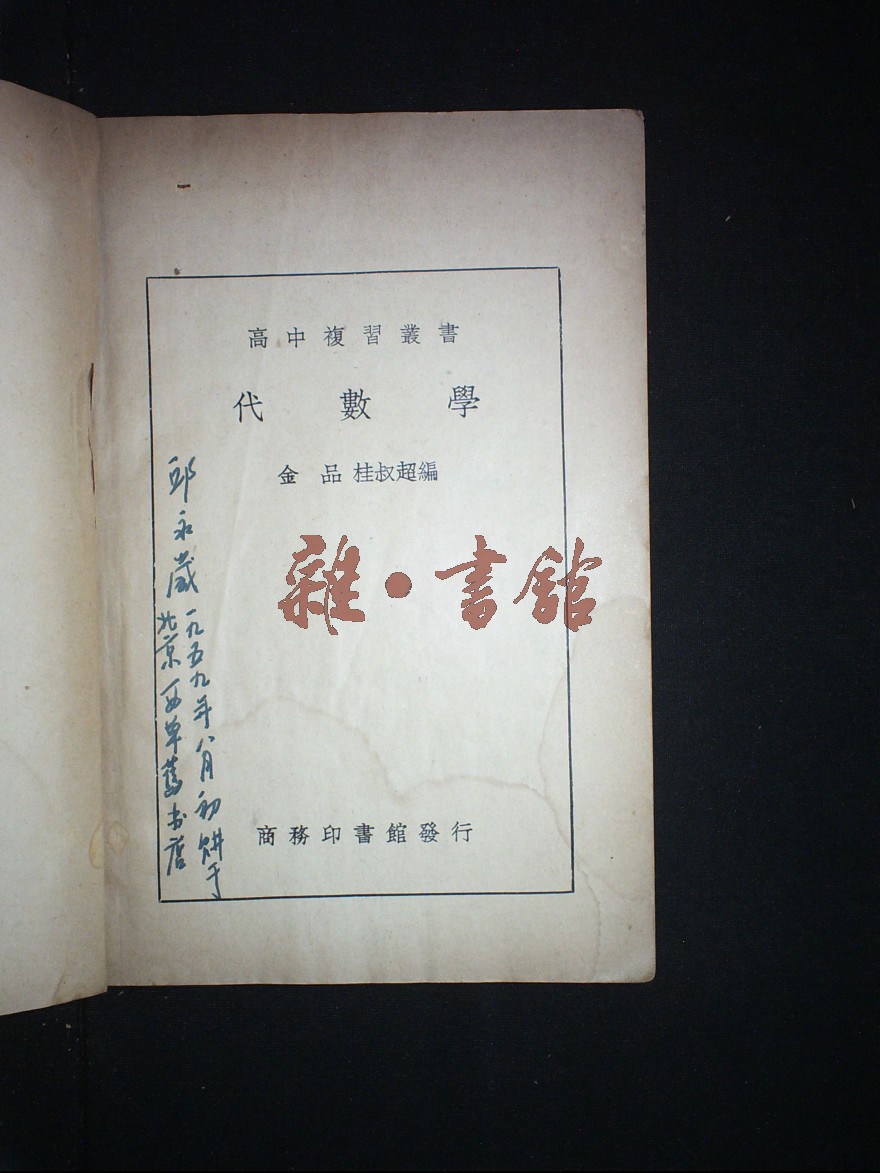 高中複習叢書
代數學
金品 桂叔超編
雜·書館
商務印書館發行
邱永嵗
一九五九年八月初購于
北京西單舊书店